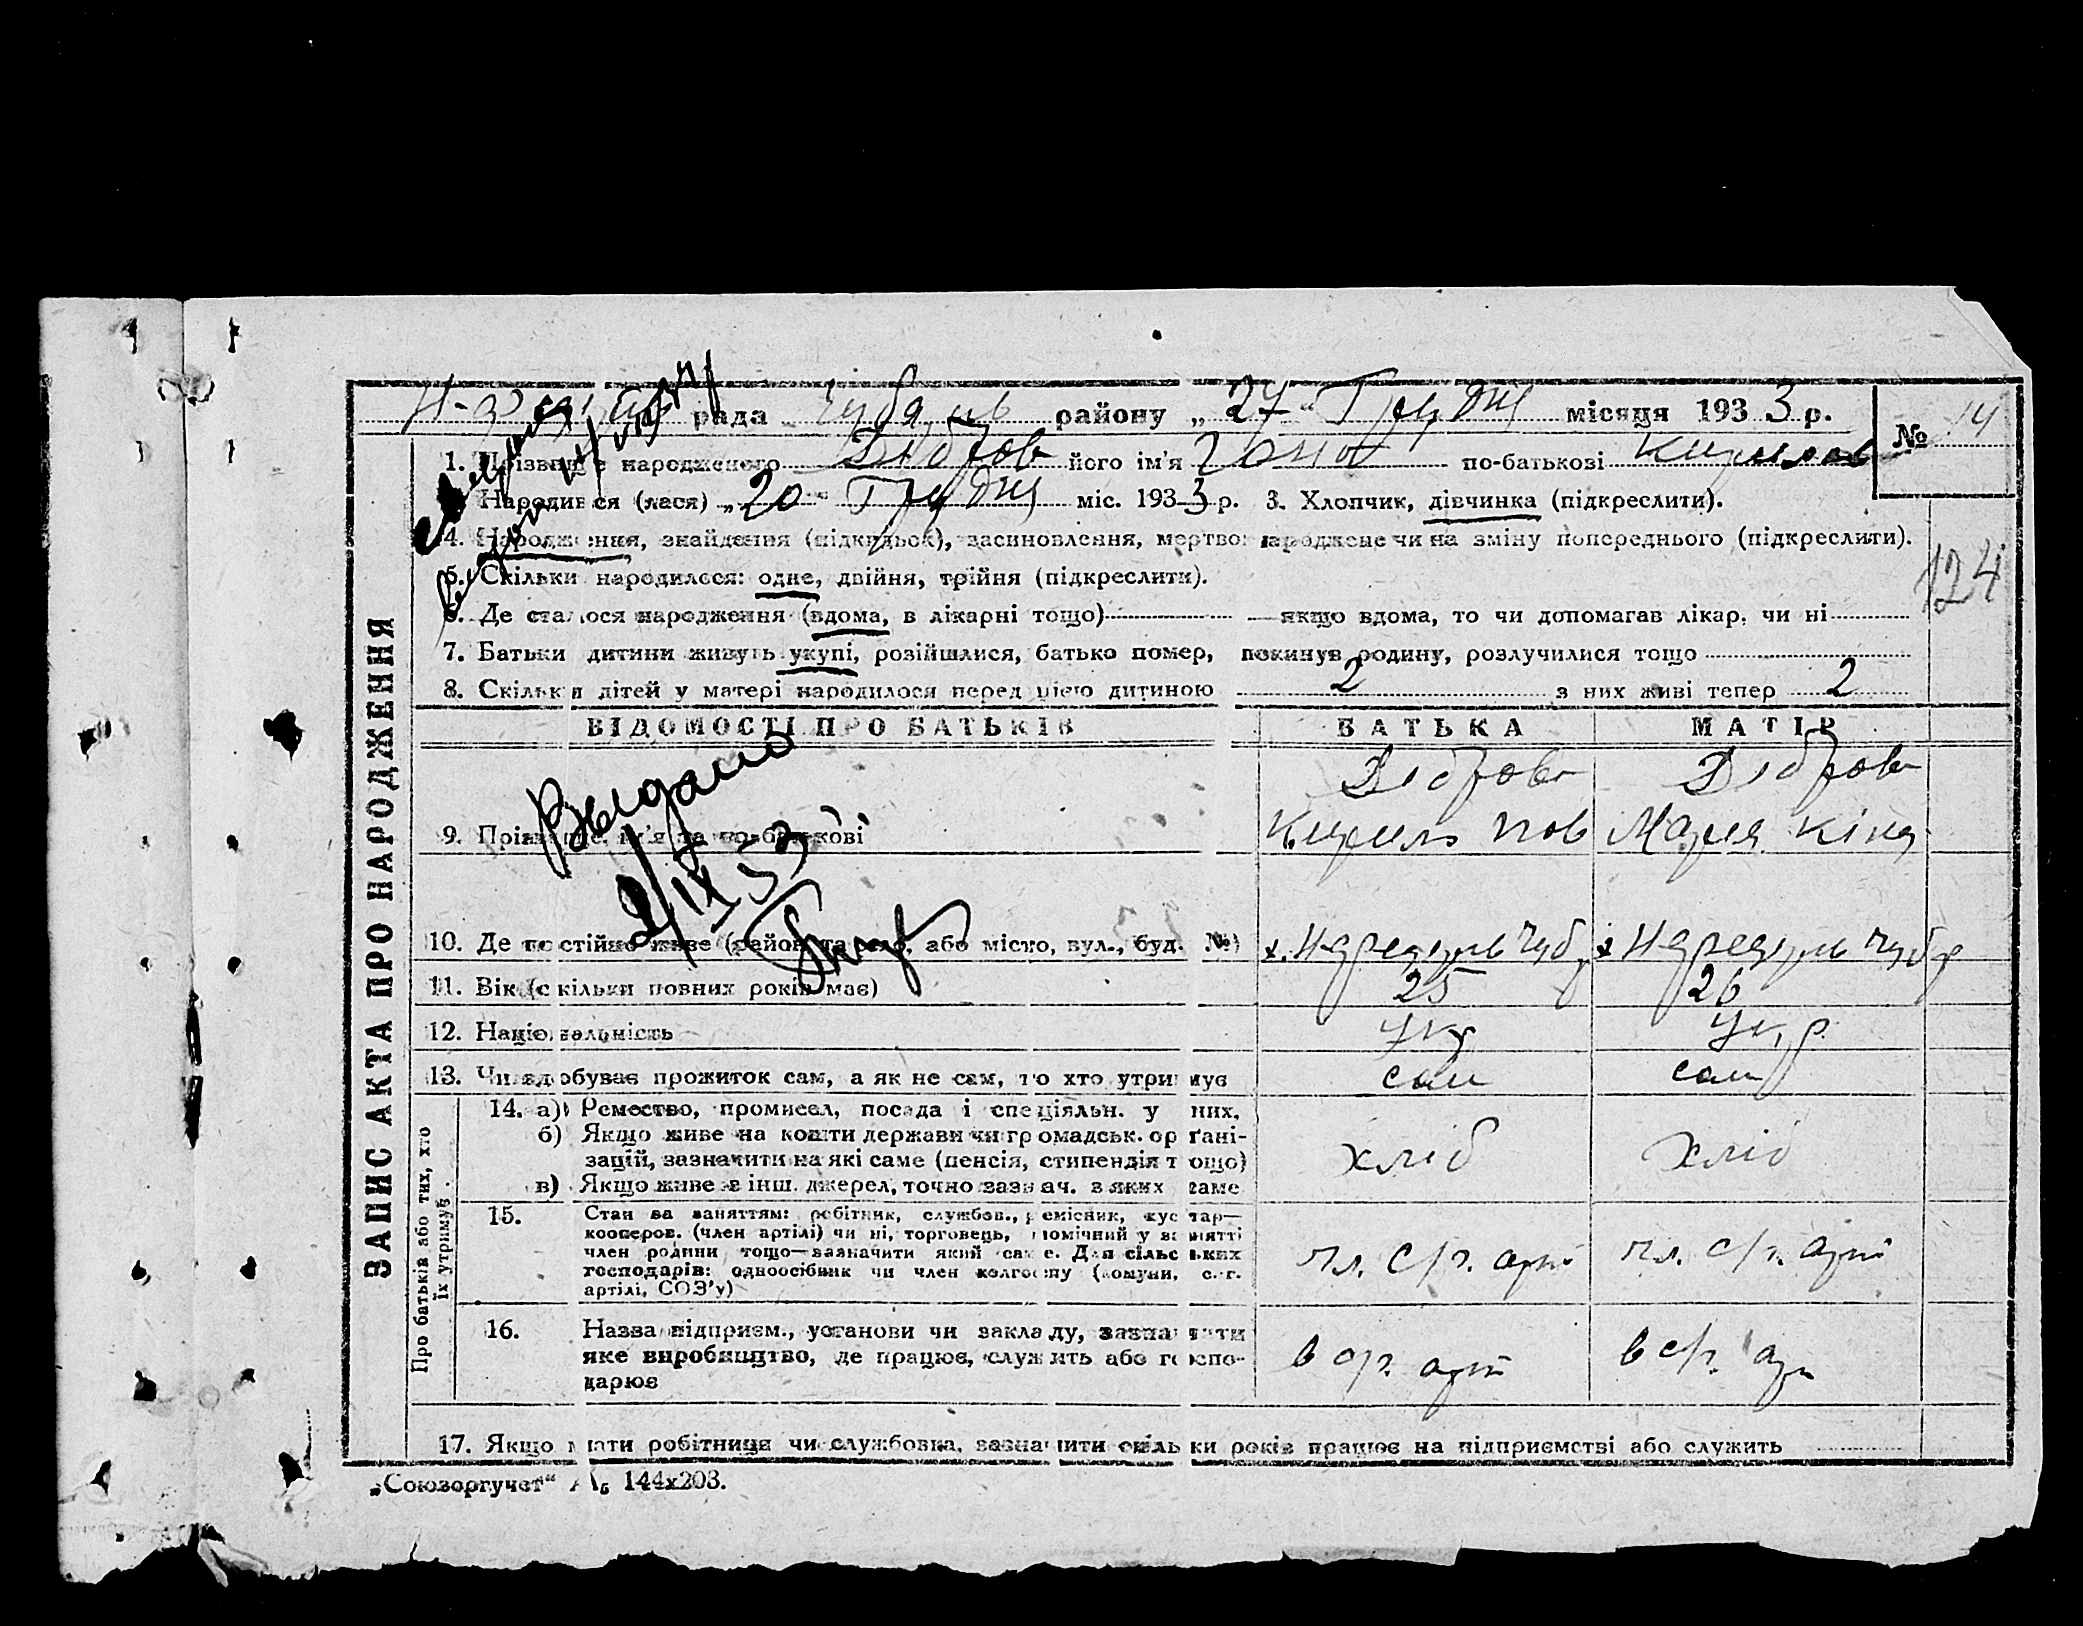 рада Чубарів району „ 27 " Грудня місяця 193 3 р. № 14
1. Прізвище народженого Дібров його ім'я по-батькові Кирилов
2. Народився (лася) „ 20 " Грудня міс. 193 3 р. 3. Хлопчик, дівчинка (підкреслити).
4. Народження, знайдення (підкидьок), засиновлення, мертвонароджене чи на зміну попереднього (підкреслити).
124
5. Скільки народилося: одне, двійня, трійня (підкреслити).
6. Де сталося народження (вдома, в лікарні тощо) — якщо вдома, то чи допомагав лікар, чи ні
7. Батьки дитини живуть укупі, розійшлися, батько помер, покинув родину, розлучилися тощо
8. Скільки дітей у матері народилося перед цією дитиною 2 з них живі тепер 2
ВІДОМОСТІ ПРО БАТЬКІВ БАТЬКА МАТІР
Дібров Дібров
9. Прізвище, ім'я та по-батькові Кирило Пов Мария Кінд
Выдано
2/IX 53
10. Де постійно живе (район та село, або місто, вул., буд. №)
11. Вік (скільки повних років має) 25 26
12. Національність Укр Укр.
13. Чи здобуває прожиток сам, а як не сам, то хто утримує сам сам
14. а) Ремество, промисел, посада і спеціяльн. у них.
б) Якщо живе на кошти держави чи громадськ. органі-
зацій, зазначити на які саме (пенсія, стипендія тощо) хліб хліб
в) Якщо живе з інш. джерел, точно зазнач. з яких саме
15. Стан за заняттям: робітник, службов., ремісник, кустар—
кооперов. (член артілі) чи ні, торговець, помічний у занятті
член родини тощо—зазначити який саме. Для сільських
господарів: одноосібник чи член колгоспу (комуни, с.-г.
артілі, СОЗ'у) чл. с/г. арт чл. с/г. арт
16. Назва підприєм., установи чи закладу, зазначити
яке виробництво, де працює, служить або госпо-
дарює в с/г. арт в с/г. ар
17. Якщо мати робітниця чи службовка, зазначити скільки років працює на підприємстві або служить
„Союзоргучет“ А₅ 144х203.
ЗАПИС АКТА ПРО НАРОДЖЕННЯ
Про батьків або тих, хто
їх утримує